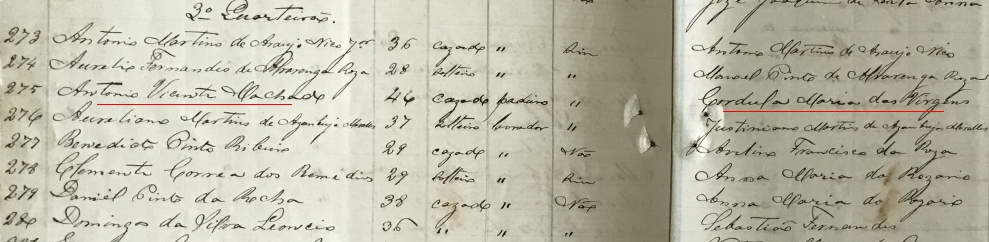 3º Quarteirão.
273 Antonio Martins de Araujo Nico Jor 36 cazado " Sim Antonio Martins de Araujo Nico
274 Aurelio Fernandes de Alvarenga Roza 28 solteiro " " Manoel Pinto de Alvarenga Roza
275 Antonio Vicente Machado 46 cazado " Cordula Maria das Virgens
276 Aureliano Martins de Azambuja Meirelles 37 solteiro lavrador " Justiniano Martins de Azambuja Meirelles
277 Benedicto Pinto Ribeiro 29 cazado " Não Francisca da Roza
278 Clemente Correa dos Remedios 29 solteiro " Sim Anna Maria do Rozario
279 Daniel Pinto da Rocha 38 cazado " Não Anna Maria do Rozario
280 Domingos da Silva Leoncio 36 " " " Sebastião Fernandes